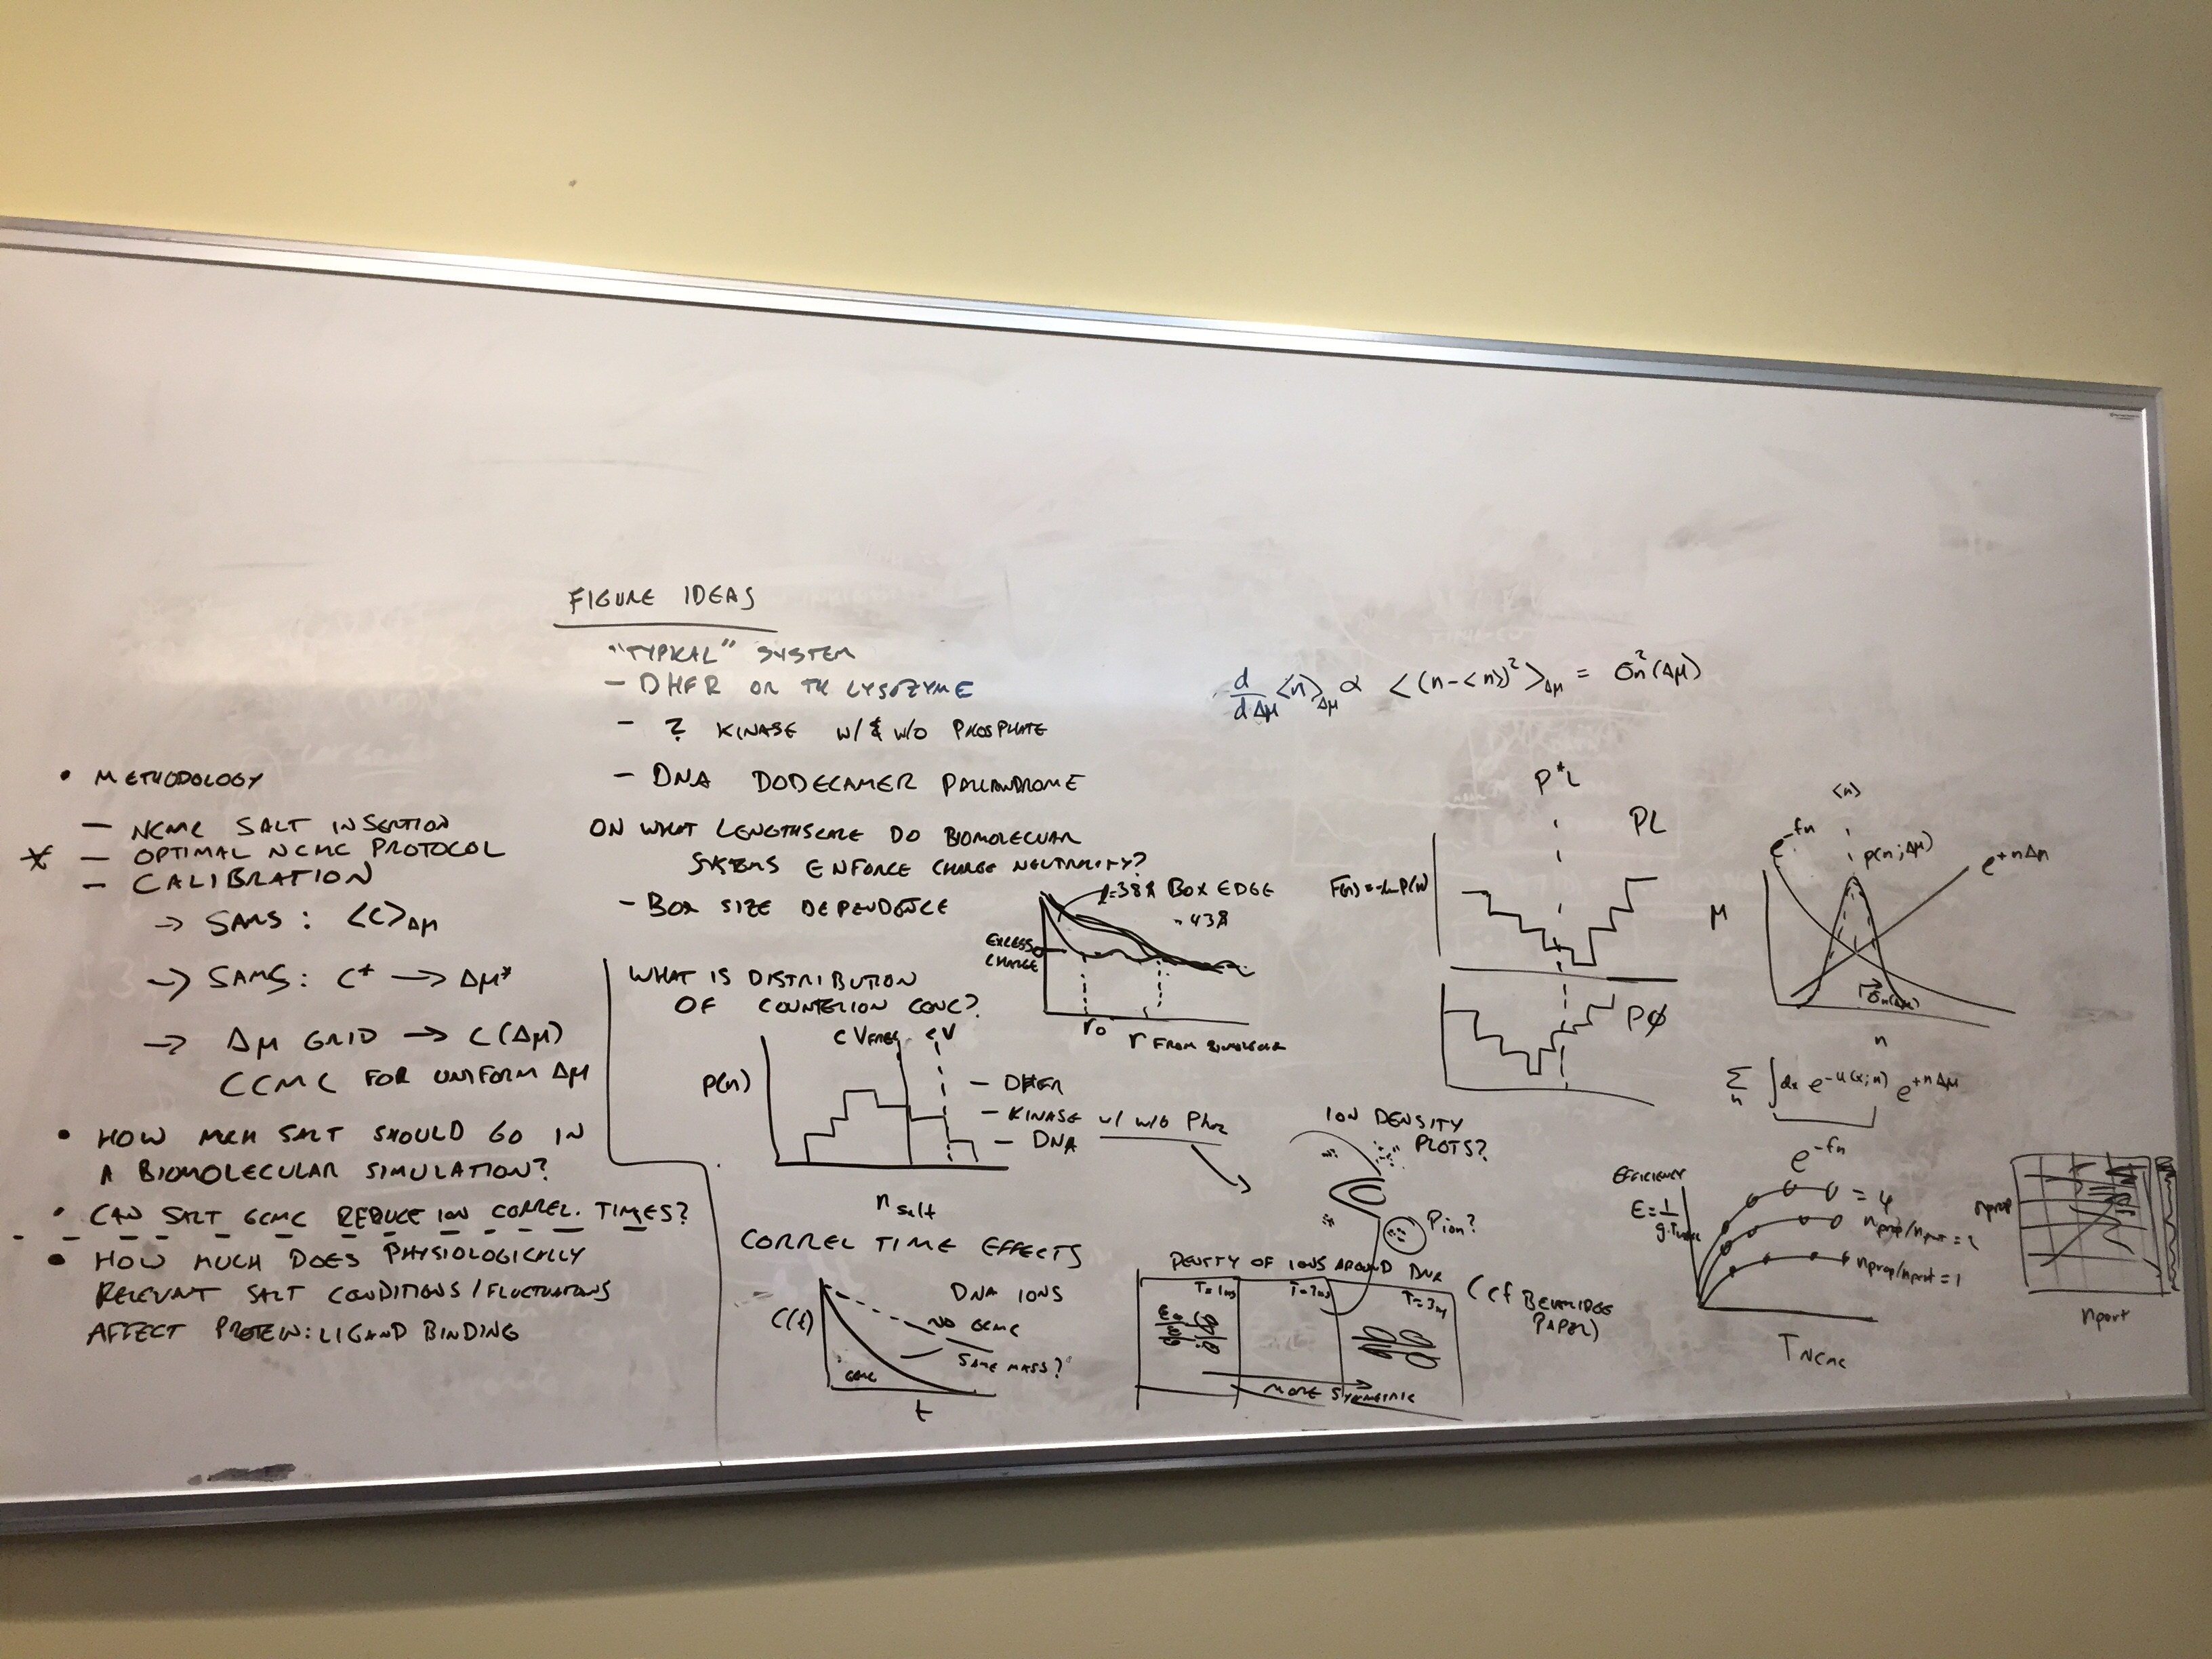 • METHODOLOGY
— NCMC SALT INSERTION
* — OPTIMAL NCMC PROTOCOL
— CALIBRATION
→ SAMS : <C>Δμ
→ SAMS : C* → Δμ*
→ Δμ GRID → C(Δμ)
CCMC FOR UNIFORM Δμ
• HOW MUCH SALT SHOULD GO IN
A BIOMOLECULAR SIMULATION?
• CAN SALT GCMC REDUCE ION CORREL. TIMES?
• HOW MUCH DOES PHYSIOLOGICALLY
RELEVANT SALT CONDITIONS / FLUCTUATIONS
AFFECT PROTEIN:LIGAND BINDING
FIGURE IDEAS
"TYPICAL" SYSTEM
— DHFR OR T4 LYSOZYME
— ? KINASE W/ & W/O PHOSPHATE
— DNA DODECAMER PALLANDROME
ON WHAT LENGTHSCALE DO BIOMOLECULAR
SYSTEMS ENFORCE CHARGE NEUTRALITY?
— BOX SIZE DEPENDENCE
l=38Å BOX EDGE
~43Å
EXCESS
CHARGE
r0
r FROM BIOMOLECULE
WHAT IS DISTRIBUTION
OF COUNTERION CONC?
cVFREE
cV
P(n)
— DHFR
— KINASE w/ w/o Phos
— DNA
n salt
CORREL TIME EFFECTS
C(t)
DNA IONS
NO GCMC
SAME MASS?
GCMC
t
ION DENSITY
PLOTS?
Pion?
DENSITY OF IONS AROUND DNA
T=1ns
T=2ns
T=3ns
MORE SYMMETRIC
(cf BEVERIDGE
PAPER)
d/dΔμ <n>Δμ ∝ <(n-<n>)²>Δμ = σn²(Δμ)
P*L
PL
F(n)=-ln P(n)
Pφ
<n>
e^-fn
p(n;Δμ)
e^+nΔμ
μ
σn(Δμ)
n
Σn ∫dx e^-u(x;n) e^+nΔμ
e^-fn
EFFICIENCY
= 4
nprop/npert = 2
nprop/npert = 1
TNCMC
nprop
npert